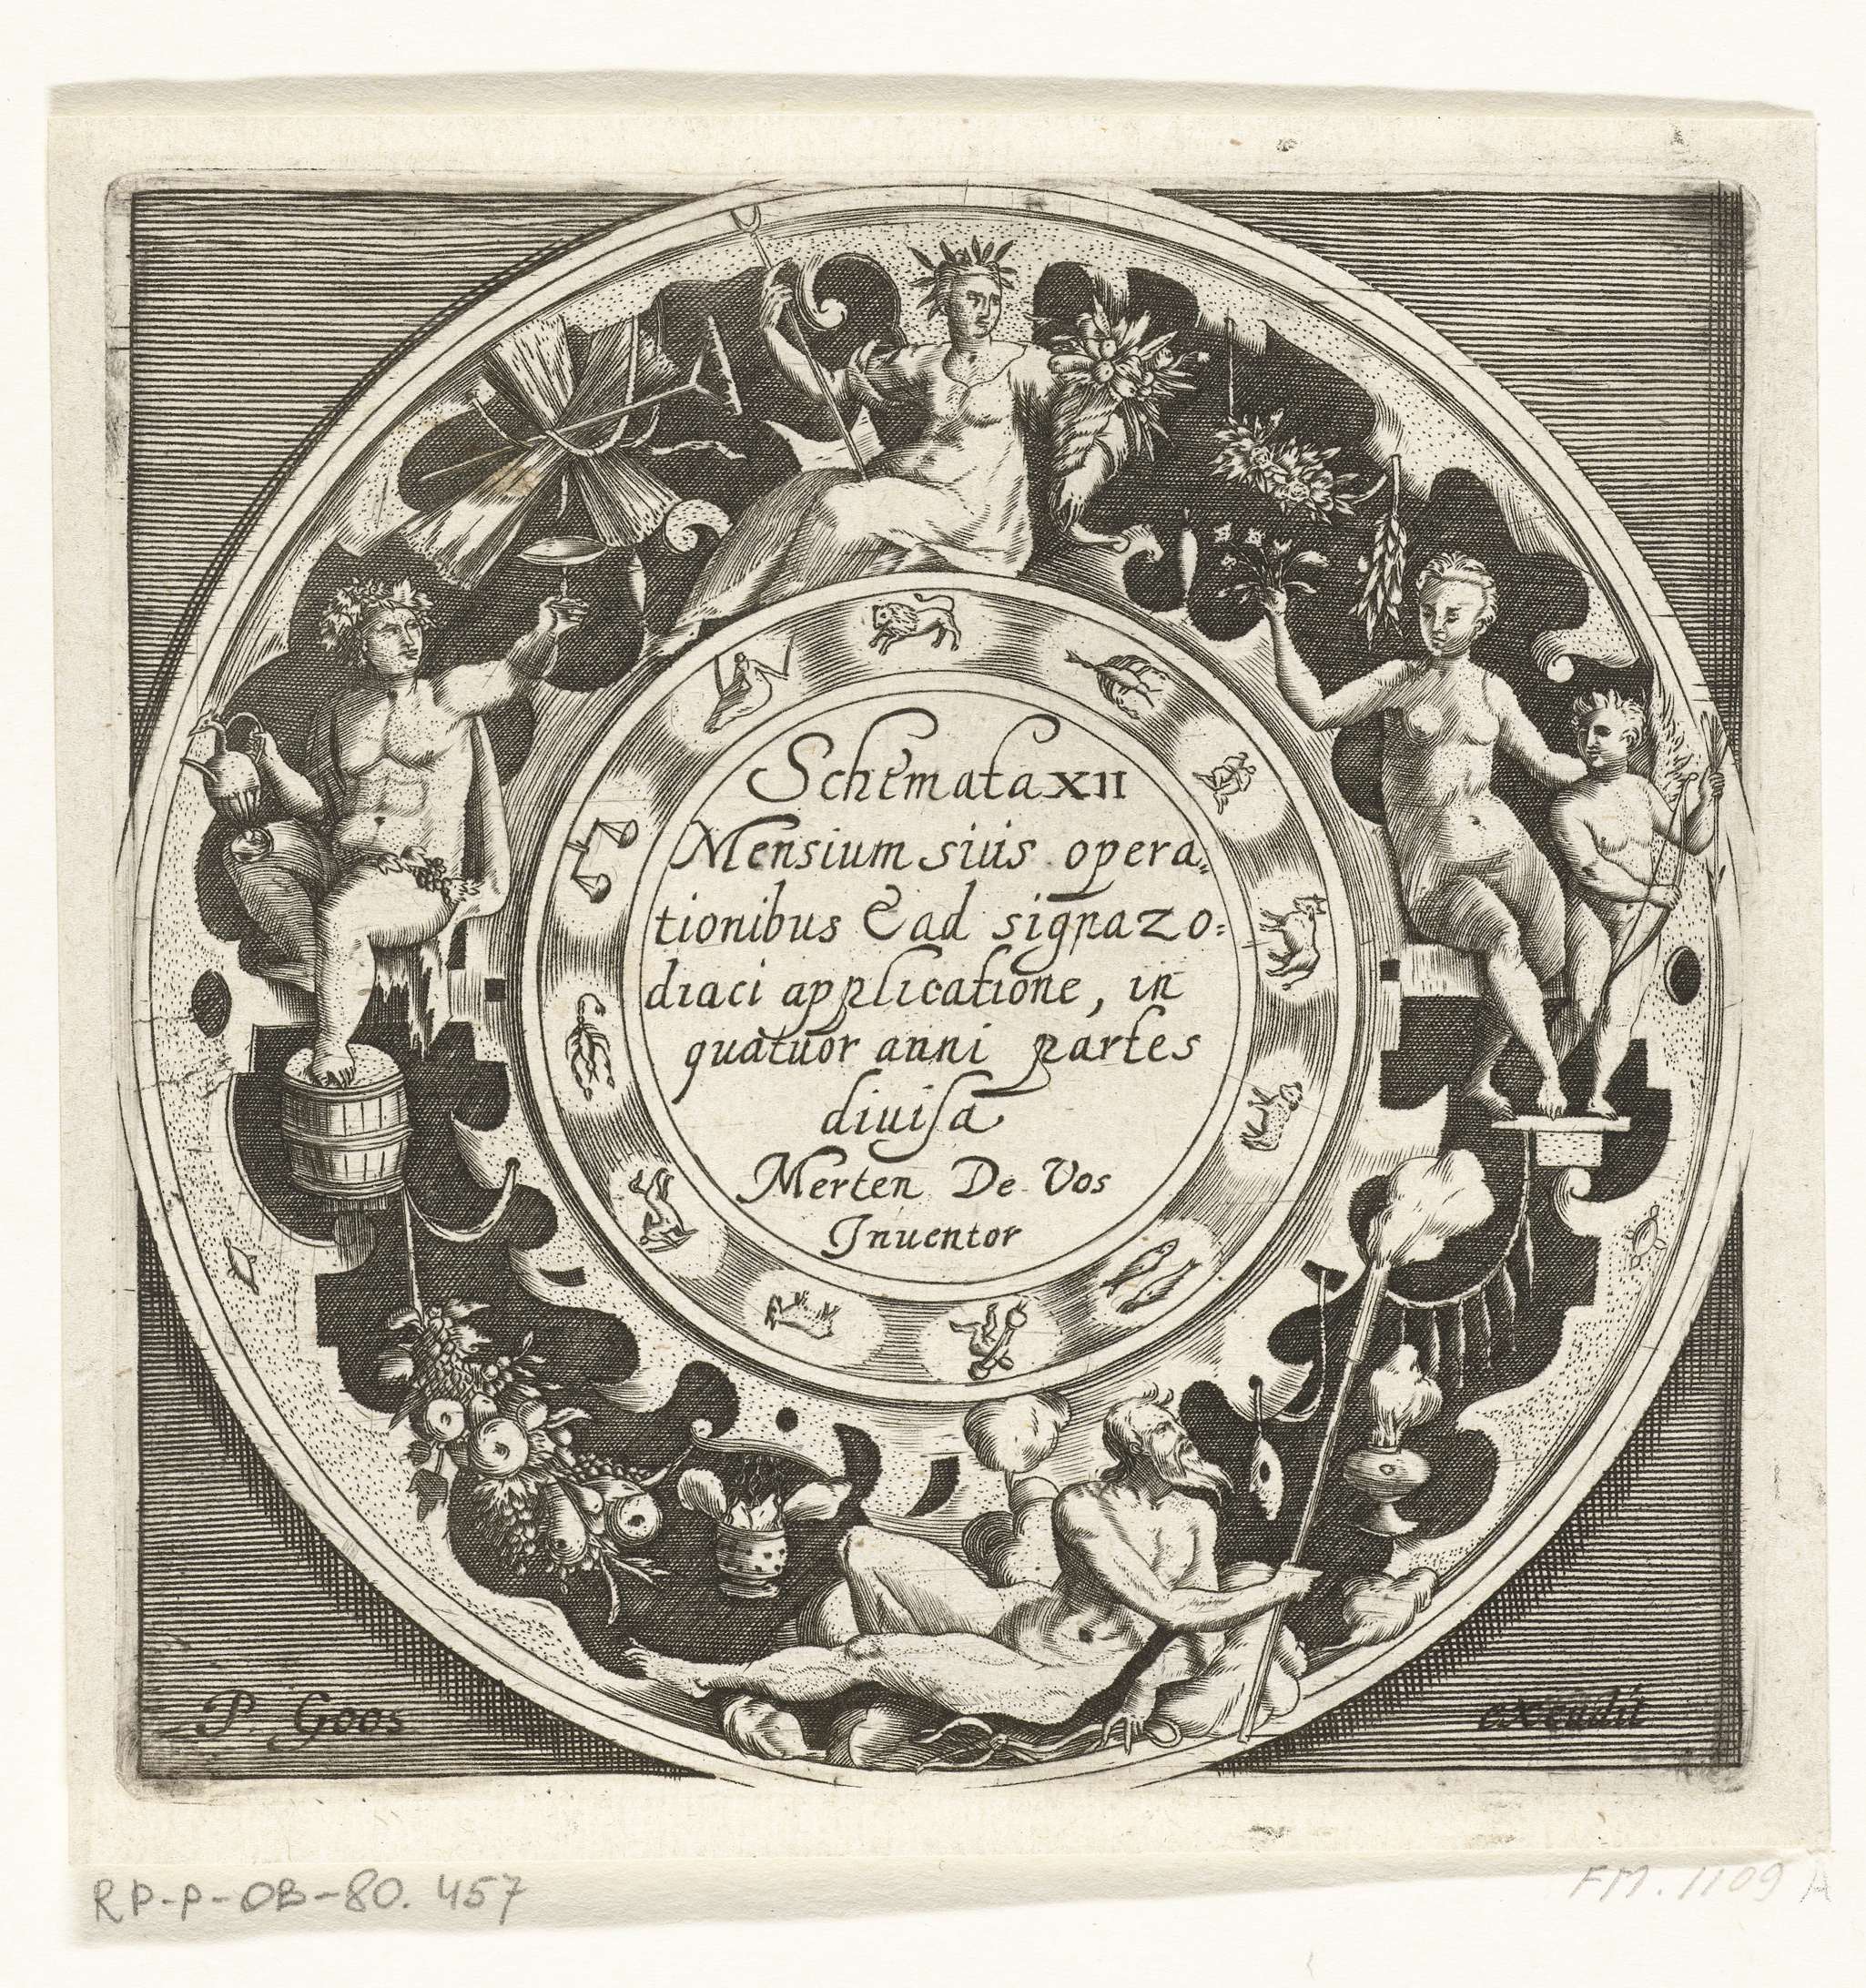 Schemata XII
Mensium siuis opera„
tionibus & ad signa zo:
diaci applicatione, in
quatuor anni partes
diuisa
Merten De Vos
Inuentor
P Goos excudit
RP-P-OB-80.457 FM.1109 A